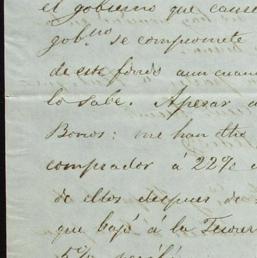 el gobierno que
gob.no se compromete
de este fondo aun cuan
lo sabe. Apesar
Bonos: me han dho
comprador á 22%
de ellos despues de
que bajó á la Tesor
5%